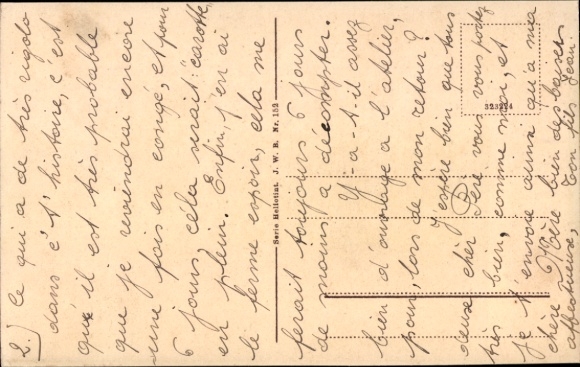 2.) Ce qui a de très rigolo
dans c't'histoire, c'est
qu'il est très probable
que je reviendrai encore
une fois en congé, et pour
6 jours, cela serait "carotte"
en plein. Enfin, j'en ai
le ferme espoir, cela me
ferait toujours 6 jours
de moins à décompter.
Y-a-t-il assez
bien d'ouvrage à l'atelier,
pour, lors de mon retour?
J'espère bien que tous
deux cher Père vous vous portez
très bien, comme moi, et
je t'envoie ainsi qu'à ma
chère Mère bien des baisers
affectueux, Ton fils Jean.
Serie Heliotint. J. W. B. Nr. 152
323224